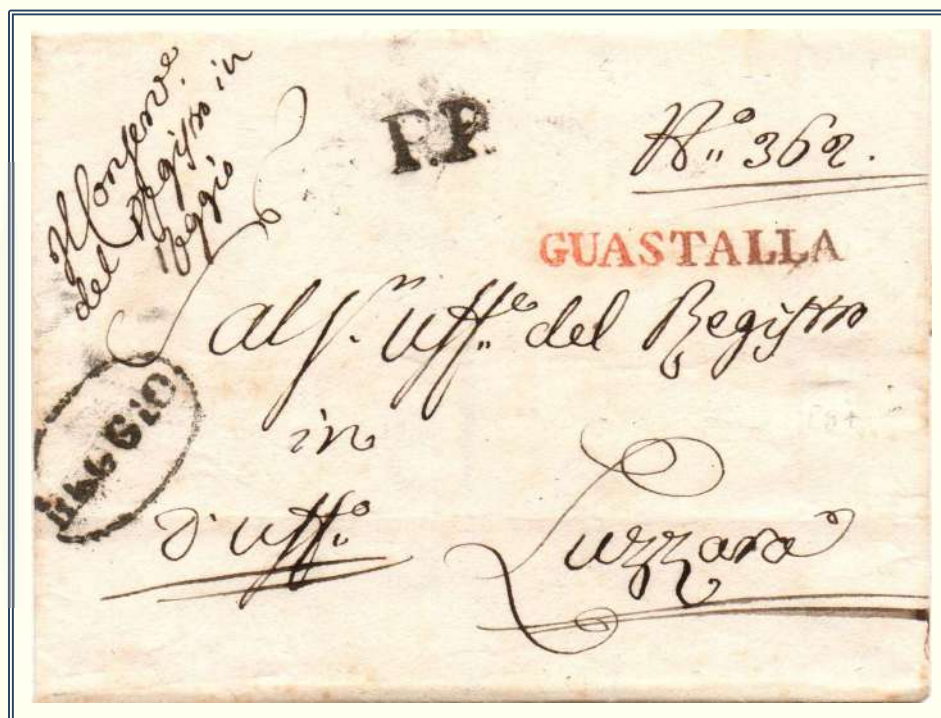 Il Conserve.
del Registro in
Reggio
P.P.
N.° 362.
GUASTALLA
al S.r Uff.e del Registro
in
Luzzara
d'Uff.o
REGGIO